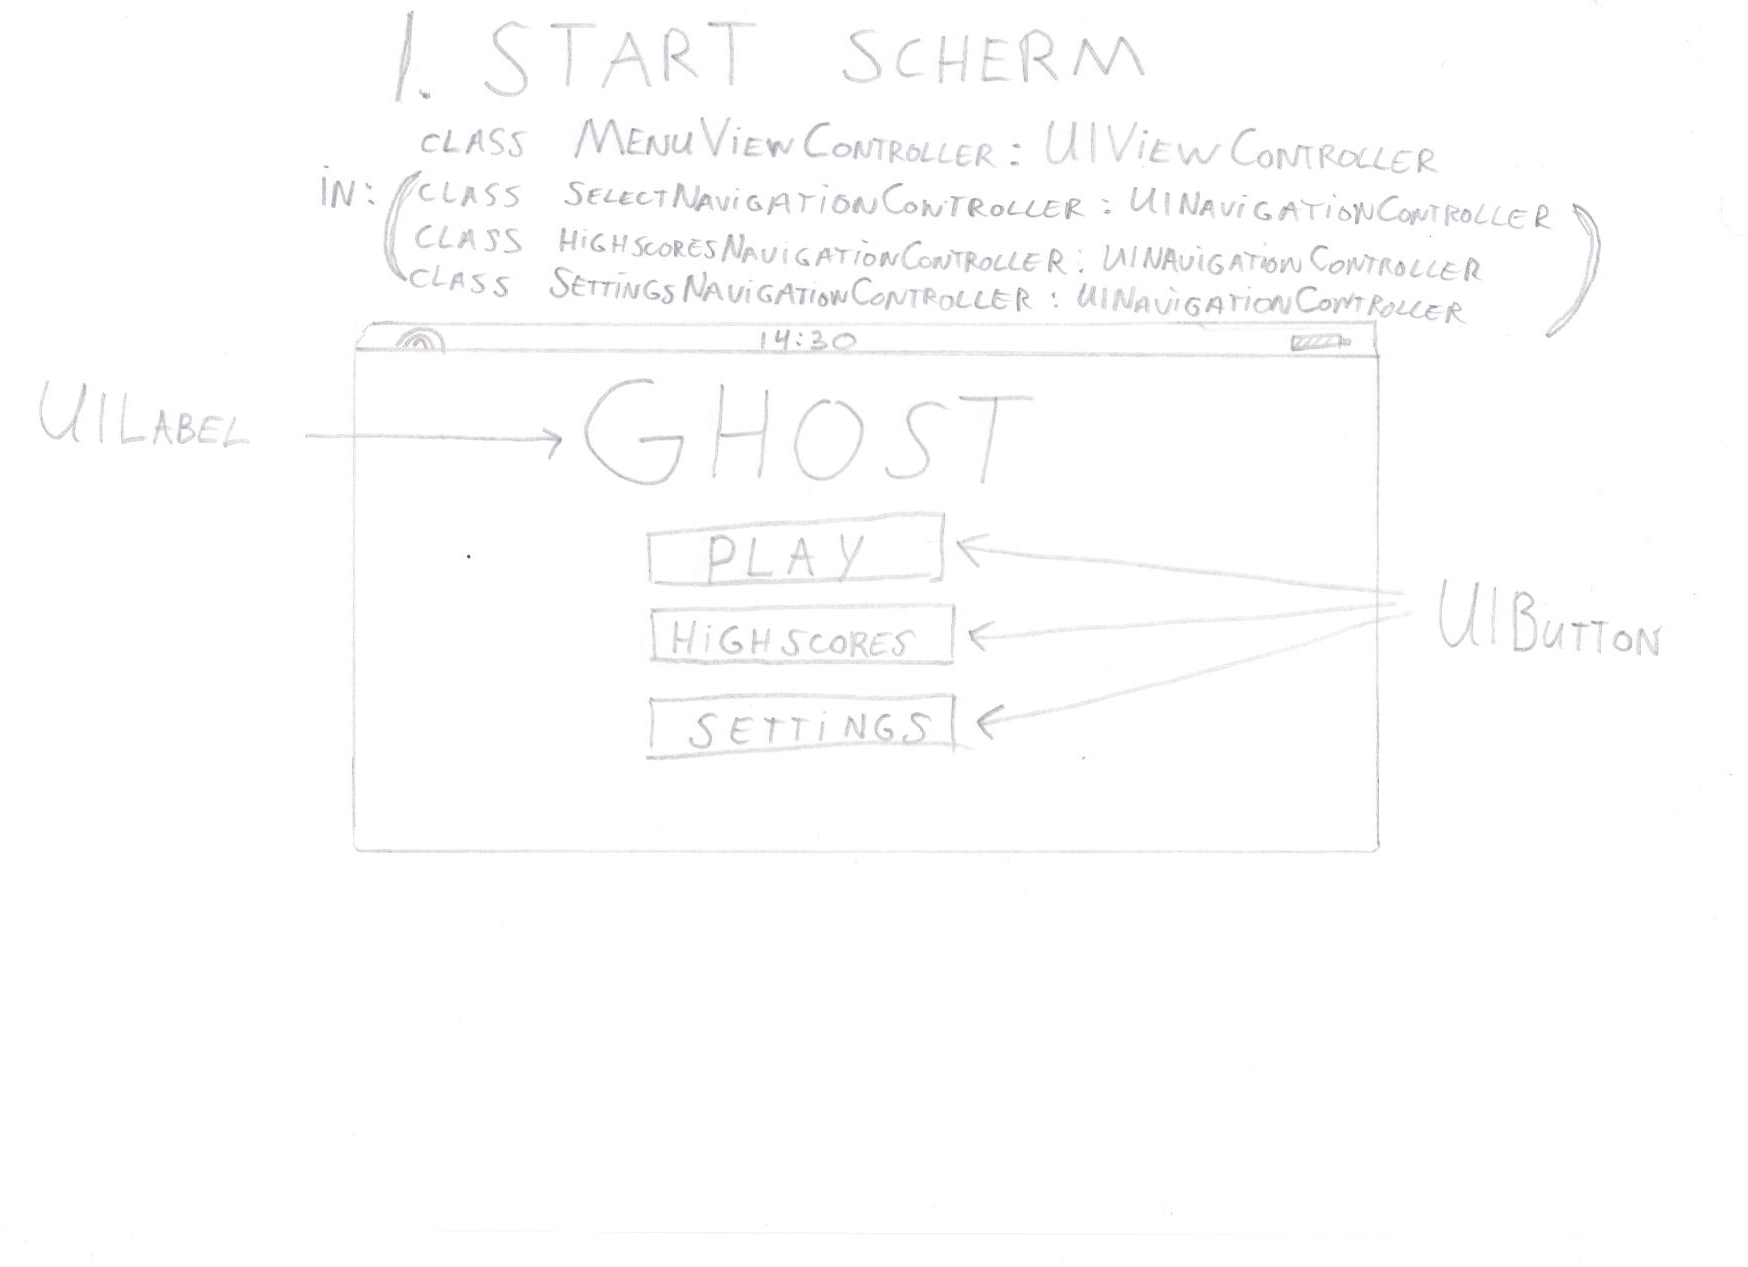 1. START SCHERM
CLASS MENUVIEWCONTROLLER: UIVIEWCONTROLLER
IN: (CLASS SELECTNAVIGATIONCONTROLLER: UINAVIGATIONCONTROLLER
CLASS HIGHSCORESNAVIGATIONCONTROLLER: UINAVIGATIONCONTROLLER
CLASS SETTINGSNAVIGATIONCONTROLLER: UINAVIGATIONCONTROLLER)
14:30
UILABEL
GHOST
PLAY
HIGHSCORES
UIBUTTON
SETTINGS